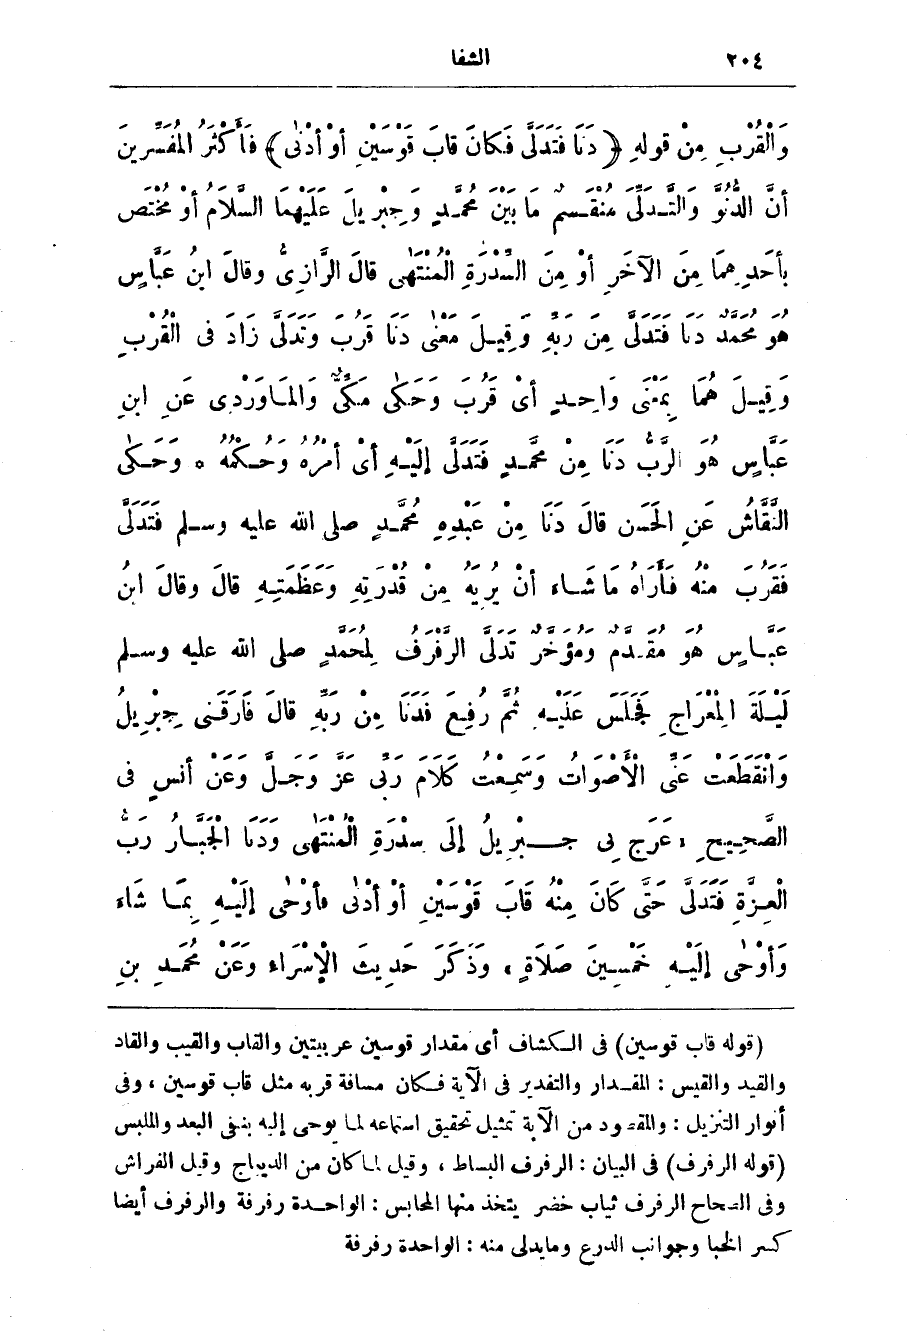 ٢٠٤ الشفا
وَالْقُرْبِ مِنْ قولهِ ﴿ دَنَا فَتَدَلَّى فَكَانَ قَابَ قَوْسَيْنِ أوْ أدْنٰى ﴾ فَأَكْثَرُ المُفَسِّرِينَ
أنَّ الدُّنُوَّ وَالتَّدَلِّىَ مُنْقَسِمٌ مَا بَيْنَ مُحَمَّدٍ وَجِبْرِيلَ عَلَيْهِمَا السَّلَامُ أوْ مُخْتَص
بأَحَدِهِمَا مِنَ الآخَرِ أوْ مِنَ السِّدْرَةِ الْمُنْتَهٰى قالَ الرَّازِىُّ وقالَ ابنُ عَبَّاسٍ
هُوَ مُحَمَّدٌ دَنَا فَتَدَلَّى مِنَ رَبِّهِ وَقِيلَ مَعْنٰى دَنَا قَرُبَ وَتَدَلَّى زَادَ فى الْقُرْبِ
وَقِيلَ هُمَا بِمَعْنًى وَاحِدٍ أىْ قَرُبَ وَحَكَى مَكِّىٌّ وَالمَاوَرْدِى عَنِ ابنِ
عَبَّاسٍ هُوَ الرَّبُّ دَنَا مِنْ مُحَمَّدٍ فَتَدَلَّى إلَيْهِ أىْ أمْرُهُ وَحُكْمُهُ * وَحَكَى
النَّقَّاشُ عَنِ الحَسَن قالَ دَنَا مِنْ عَبْدِهِ مُحَمَّدٍ صلى الله عليه وسلم فَتَدَلَّى
فَقَرُبَ مْنهُ فَأَرَاهُ مَا شَاء أنْ يُرِيَهُ مِنْ قُدْرَتِهِ وَعَظَمَتِهِ قالَ وقالَ ابنُ
عَبَّاسٍ هُوَ مُقَدَّمٌ وَمُؤَخَّرٌ تَدَلَّى الرَّفْرَفُ لِمُحَمَّدٍ صلى الله عليه وسلم
لَيْلَةَ المِعْرَاجِ فَجَلَسَ عَلَيْهِ ثُمَّ رُفِعَ فَدَنَا مِنْ رَبِّهِ قالَ فَارَقَنى جِبْرِيلُ
وَانْقَطَعَتْ عَنِّى الْأَصْوَاتُ وَسَمِعْتُ كَلَامَ رَبِّى عَزَّ وَجَلَّ وَعَنْ أنَسٍ فى
الصَّحِيحِ : عَرَجَ بِى جِبْرِيلُ إلَى سِدْرَةِ الْمُنْتَهٰى وَدَنَا الْجَبَّارُ رَبُّ
الْعِزَّةِ فَتَدَلَّى حَتَّى كَانَ مِنْهُ قَابَ قَوْسَيْنِ أوْ أدْنٰى فأوْحٰى إلَيْهِ بِمَا شَاء
وَأوْحٰى إلَيْهِ خَمْسِينَ صَلَاةٍ ، وَذَكَرَ حَدِيثَ الْإسْرَاء وَعَنْ مُحَمَّدِ بنِ
(قوله قاب قوسين) فى الكشاف أى مقدار قوسين عربيتين والقاب والقيب والقاد
والقيد والقيس : المقدار والتقدير فى الآية فكان مسافة قربه مثل قاب قوسين ، وفى
أنوار التنزيل : والمقصود من الآية تمثيل تحقيق استماعه لما يوحى إليه بنفى البعد والملبس
(قوله الرفرف) فى البيان : الرفرف البساط ، وقيل لما كان من الديباج وقيل الفراش
وفى الصحاح الرفرف ثياب خضر يتخذ منها المحابس : الواحدة رفرفة والرفرف أيضا
كسر الخبا وجوانب الدرع ومايدلى منه : الواحدة رفرفة